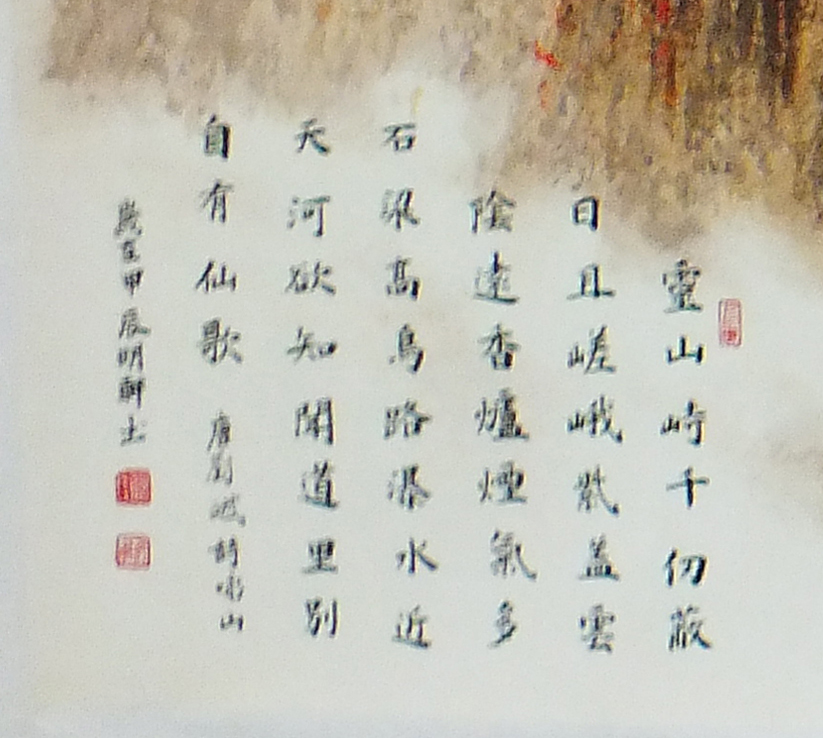 靈山峙千仞蔽
日且嵯峨紫蓋雲
陰遠香爐煙氣多
石梁高鳥路瀑水近
天河欲知聞道里別
自有仙歌
唐劉斌詩咏山
歲在甲辰明軒书